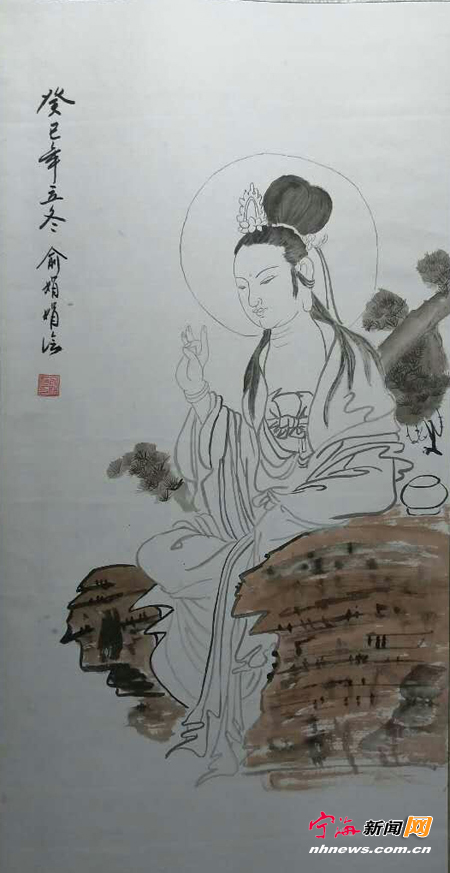 癸巳年立冬 俞娟娟绘
宁海新闻网
nhnews.com.cn